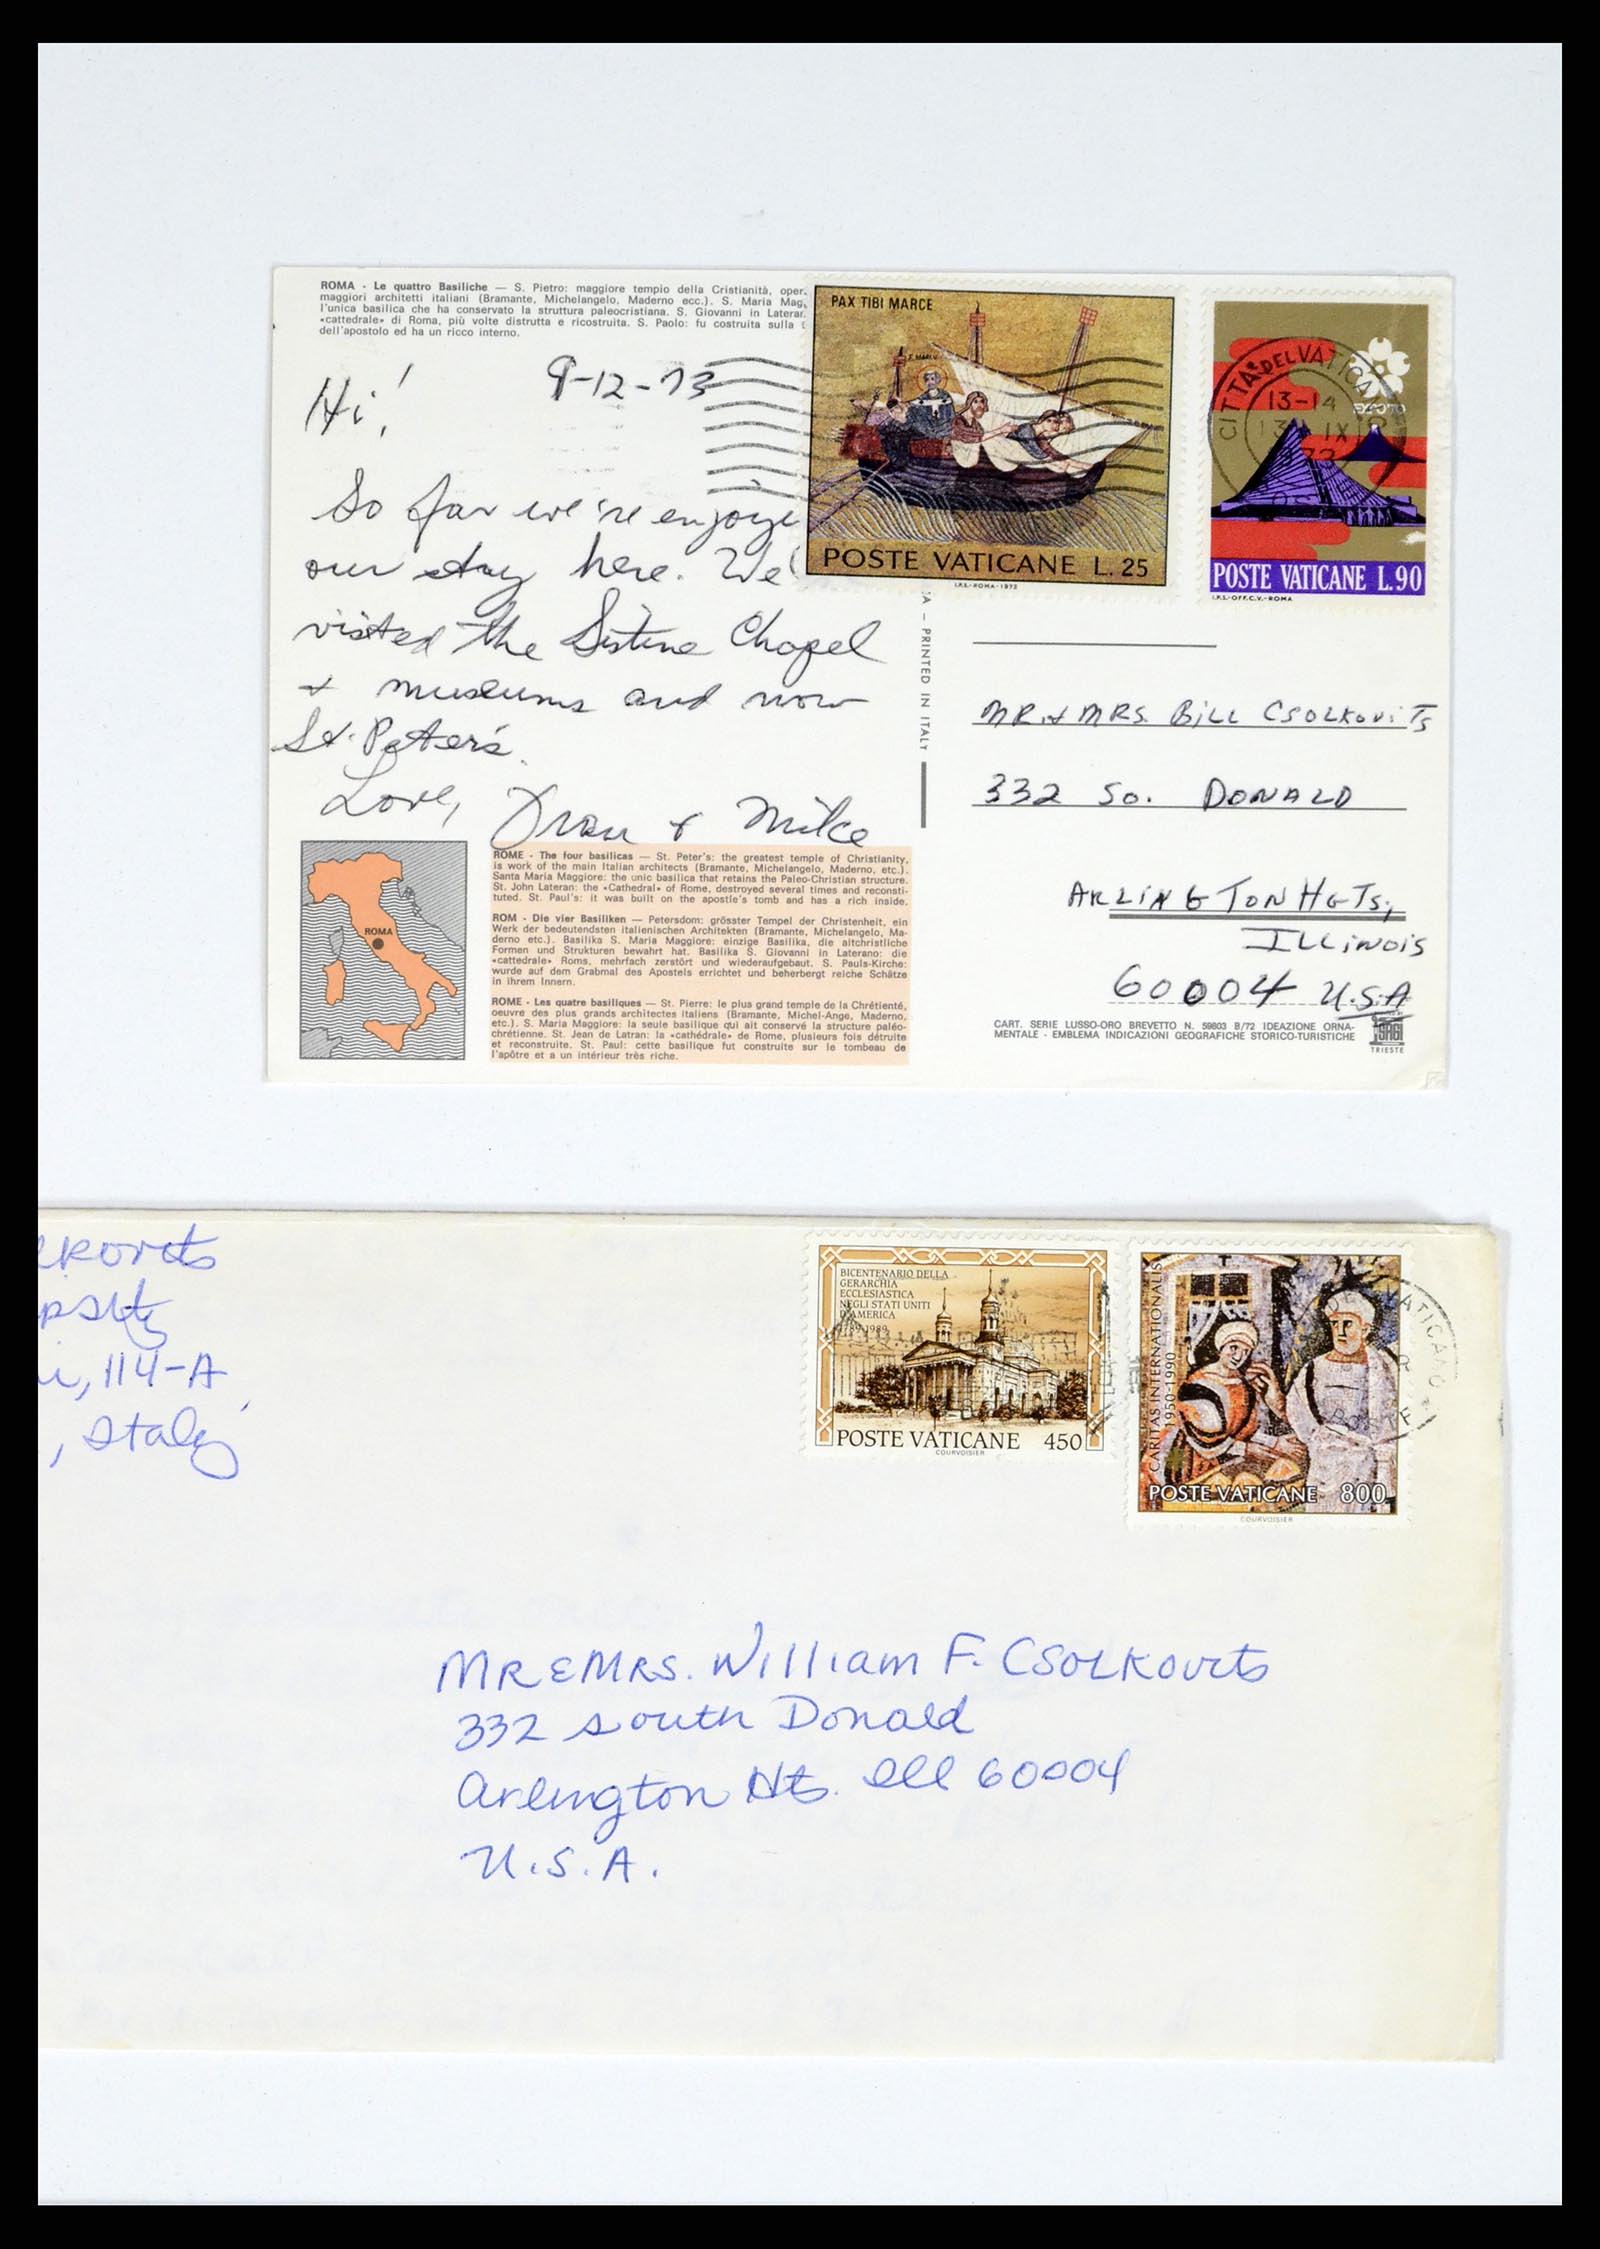 ROMA - Le quattro Basiliche — S. Pietro: maggiore tempio della Cristianità, oper
maggiori architetti italiani (Bramante, Michelangelo, Maderno ecc.). S. Maria Mag
l'unica basilica che ha conservato la struttura paleocristiana. S. Giovanni in Lateran
«cattedrale» di Roma, più volte distrutta e ricostruita. S. Paolo: fu costruita sulla
dell'apostolo ed ha un ricco interno.
9-12-73
Hi!
So far we're enjoyi
our stay here. We
visited the Sistine Chapel
+ museums and now
St. Peter's.
Love,
Fran + Mike
PAX TIBI MARCE
S. MARCV
POSTE VATICANE L. 25
I.P.S.-ROMA-1972
CITTA DEL VATICANO
13-14
13 IX
POSTE
EXPO'70
POSTE VATICANE L.90
I.P.S.-OFF.C.V.-ROMA
A — PRINTED IN ITALY
MR. & MRS. BILL CSOLKOVITS
332 SO. DONALD
ARLINGTON HGTS,
ILLINOIS
60004 U.S.A
ROMA
ROME - The four basilicas — St. Peter's: the greatest temple of Christianity,
is work of the main Italian architects (Bramante, Michelangelo, Maderno, etc.).
Santa Maria Maggiore: the unic basilica that retains the Paleo-Christian structure.
St. John Lateran: the «Cathedral» of Rome, destroyed several times and reconsti-
tuted. St. Paul's: it was built on the apostle's tomb and has a rich inside.
ROM - Die vier Basiliken — Petersdom: grösster Tempel der Christenheit, ein
Werk der bedeutendsten italienischen Architekten (Bramante, Michelangelo, Ma-
derno etc.). Basilika S. Maria Maggiore: einzige Basilika, die altchristliche
Formen und Strukturen bewahrt hat. Basilika S. Giovanni in Laterano: die
«cattedrale» Roms, mehrfach zerstört und wiederaufgebaut. S. Pauls-Kirche:
wurde auf dem Grabmal des Apostels errichtet und beherbergt reiche Schätze
in ihrem Innern.
ROME - Les quatre basiliques — St. Pierre: le plus grand temple de la Chrétienté,
oeuvre des plus grands architectes italiens (Bramante, Michel-Ange, Maderno,
etc.). S. Maria Maggiore: la seule basilique qui ait conservé la structure paléo-
chrétienne. St. Jean de Latran: la «cathédrale» de Rome, plusieurs fois détruite
et reconstruite. St. Paul: cette basilique fut construite sur le tombeau de
l'apôtre et a un intérieur très riche.
CART. SERIE LUSSO-ORO BREVETTO N. 59803 B/72 IDEAZIONE ORNA-
MENTALE - EMBLEMA INDICAZIONI GEOGRAFICHE STORICO-TURISTICHE
TRIESTE
lkovits
i, 114-A
, Italy
BICENTENARIO DELLA
GERARCHIA
ECCLESIASTICA
NEGLI STATI UNITI
D'AMERICA
1789-1989
POSTE VATICANE 450
COURVOISIER
CARITAS INTERNATIONALIS
1950-1990
DEL VATICANO
POSTE
POSTE VATICANE 800
COURVOISIER
MR & MRS. William F. CSOLKOVITS
332 South Donald
Arlington Hts. Ill 60004
U.S.A.